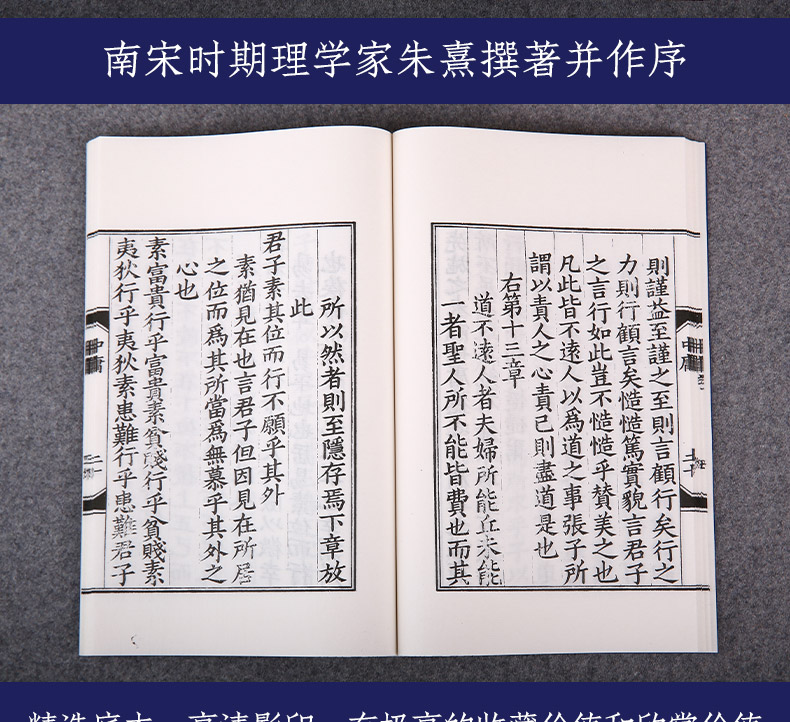 南宋时期理学家朱熹撰著并作序
則謹益至謹之至則言顧行矣行之
力則行顧言矣慥慥篤實貌言君子
之言行如此豈不慥慥乎賛美之也
凡此皆不遠人以爲道之事張子所
謂以責人之心責己則盡道是也
右第十三章
道不遠人者夫婦所能丘未能
一者聖人所不能皆費也而其
所以然者則至隱存焉下章放
此
君子素其位而行不願乎其外
素猶見在也言君子但因見在所居
之位而爲其所當爲無慕乎其外之
心也
素富貴行乎富貴素貧賤行乎貧賤素
夷狄行乎夷狄素患難行乎患難君子
中庸